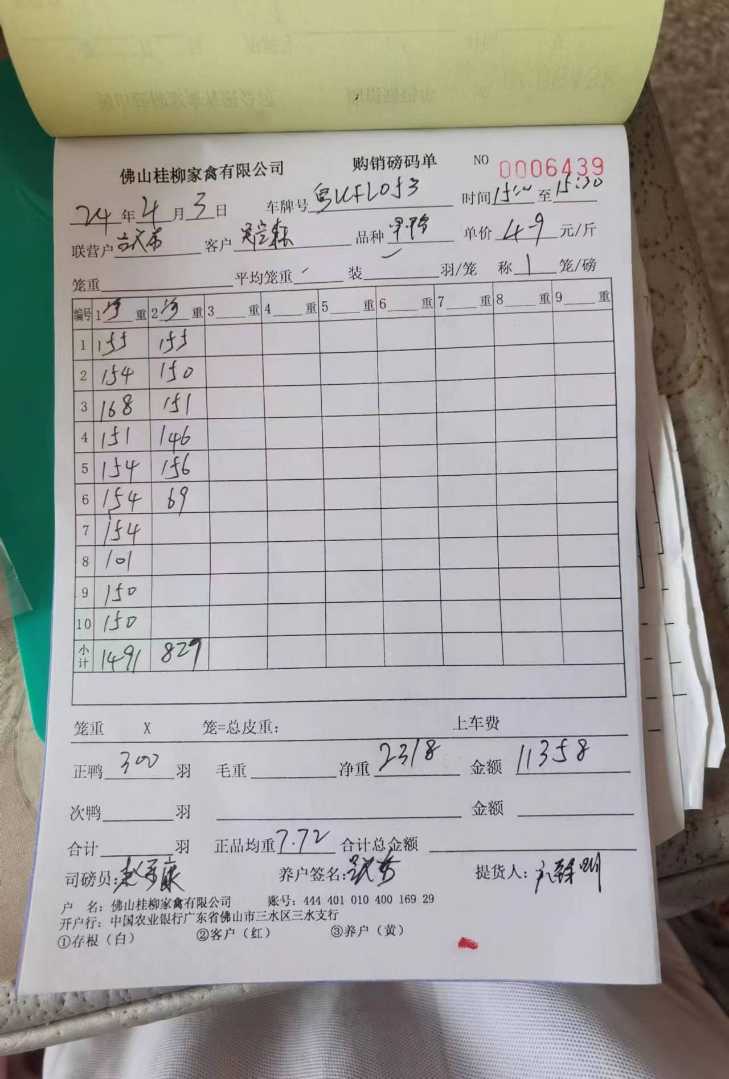 佛山桂柳家禽有限公司 购销磅码单 NO 0006439
24年4月3日 车牌号 时间15:00至15:30
联营户 客户 品种 单价4.9元/斤
笼重 平均笼重 装 羽/笼 称1笼/磅
编号 1 重 2 重 3 重 4 重 5 重 6 重 7 重 8 重 9 重
1 155 155
2 154 150
3 168 151
4 151 146
5 154 156
6 154 69
7 154
8 101
9 150
10 150
小计 1491 827
笼重 X 笼=总皮重: 上车费
正鸭300羽 毛重 净重2318 金额11358
次鸭 羽 金额
合计 羽 正品均重7.72 合计总金额
司磅员: 养户签名: 提货人:
户 名: 佛山桂柳家禽有限公司 账号: 444 401 010 400 169 29
开户行: 中国农业银行广东省佛山市三水区三水支行
①存根（白） ②客户（红） ③养户（黄）